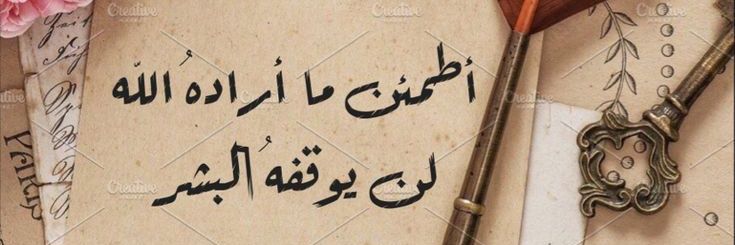 أطمئن ما أرادهُ الله
لن يوقفهُ البشر
Creative
Creative
Creative
Creative
Creative